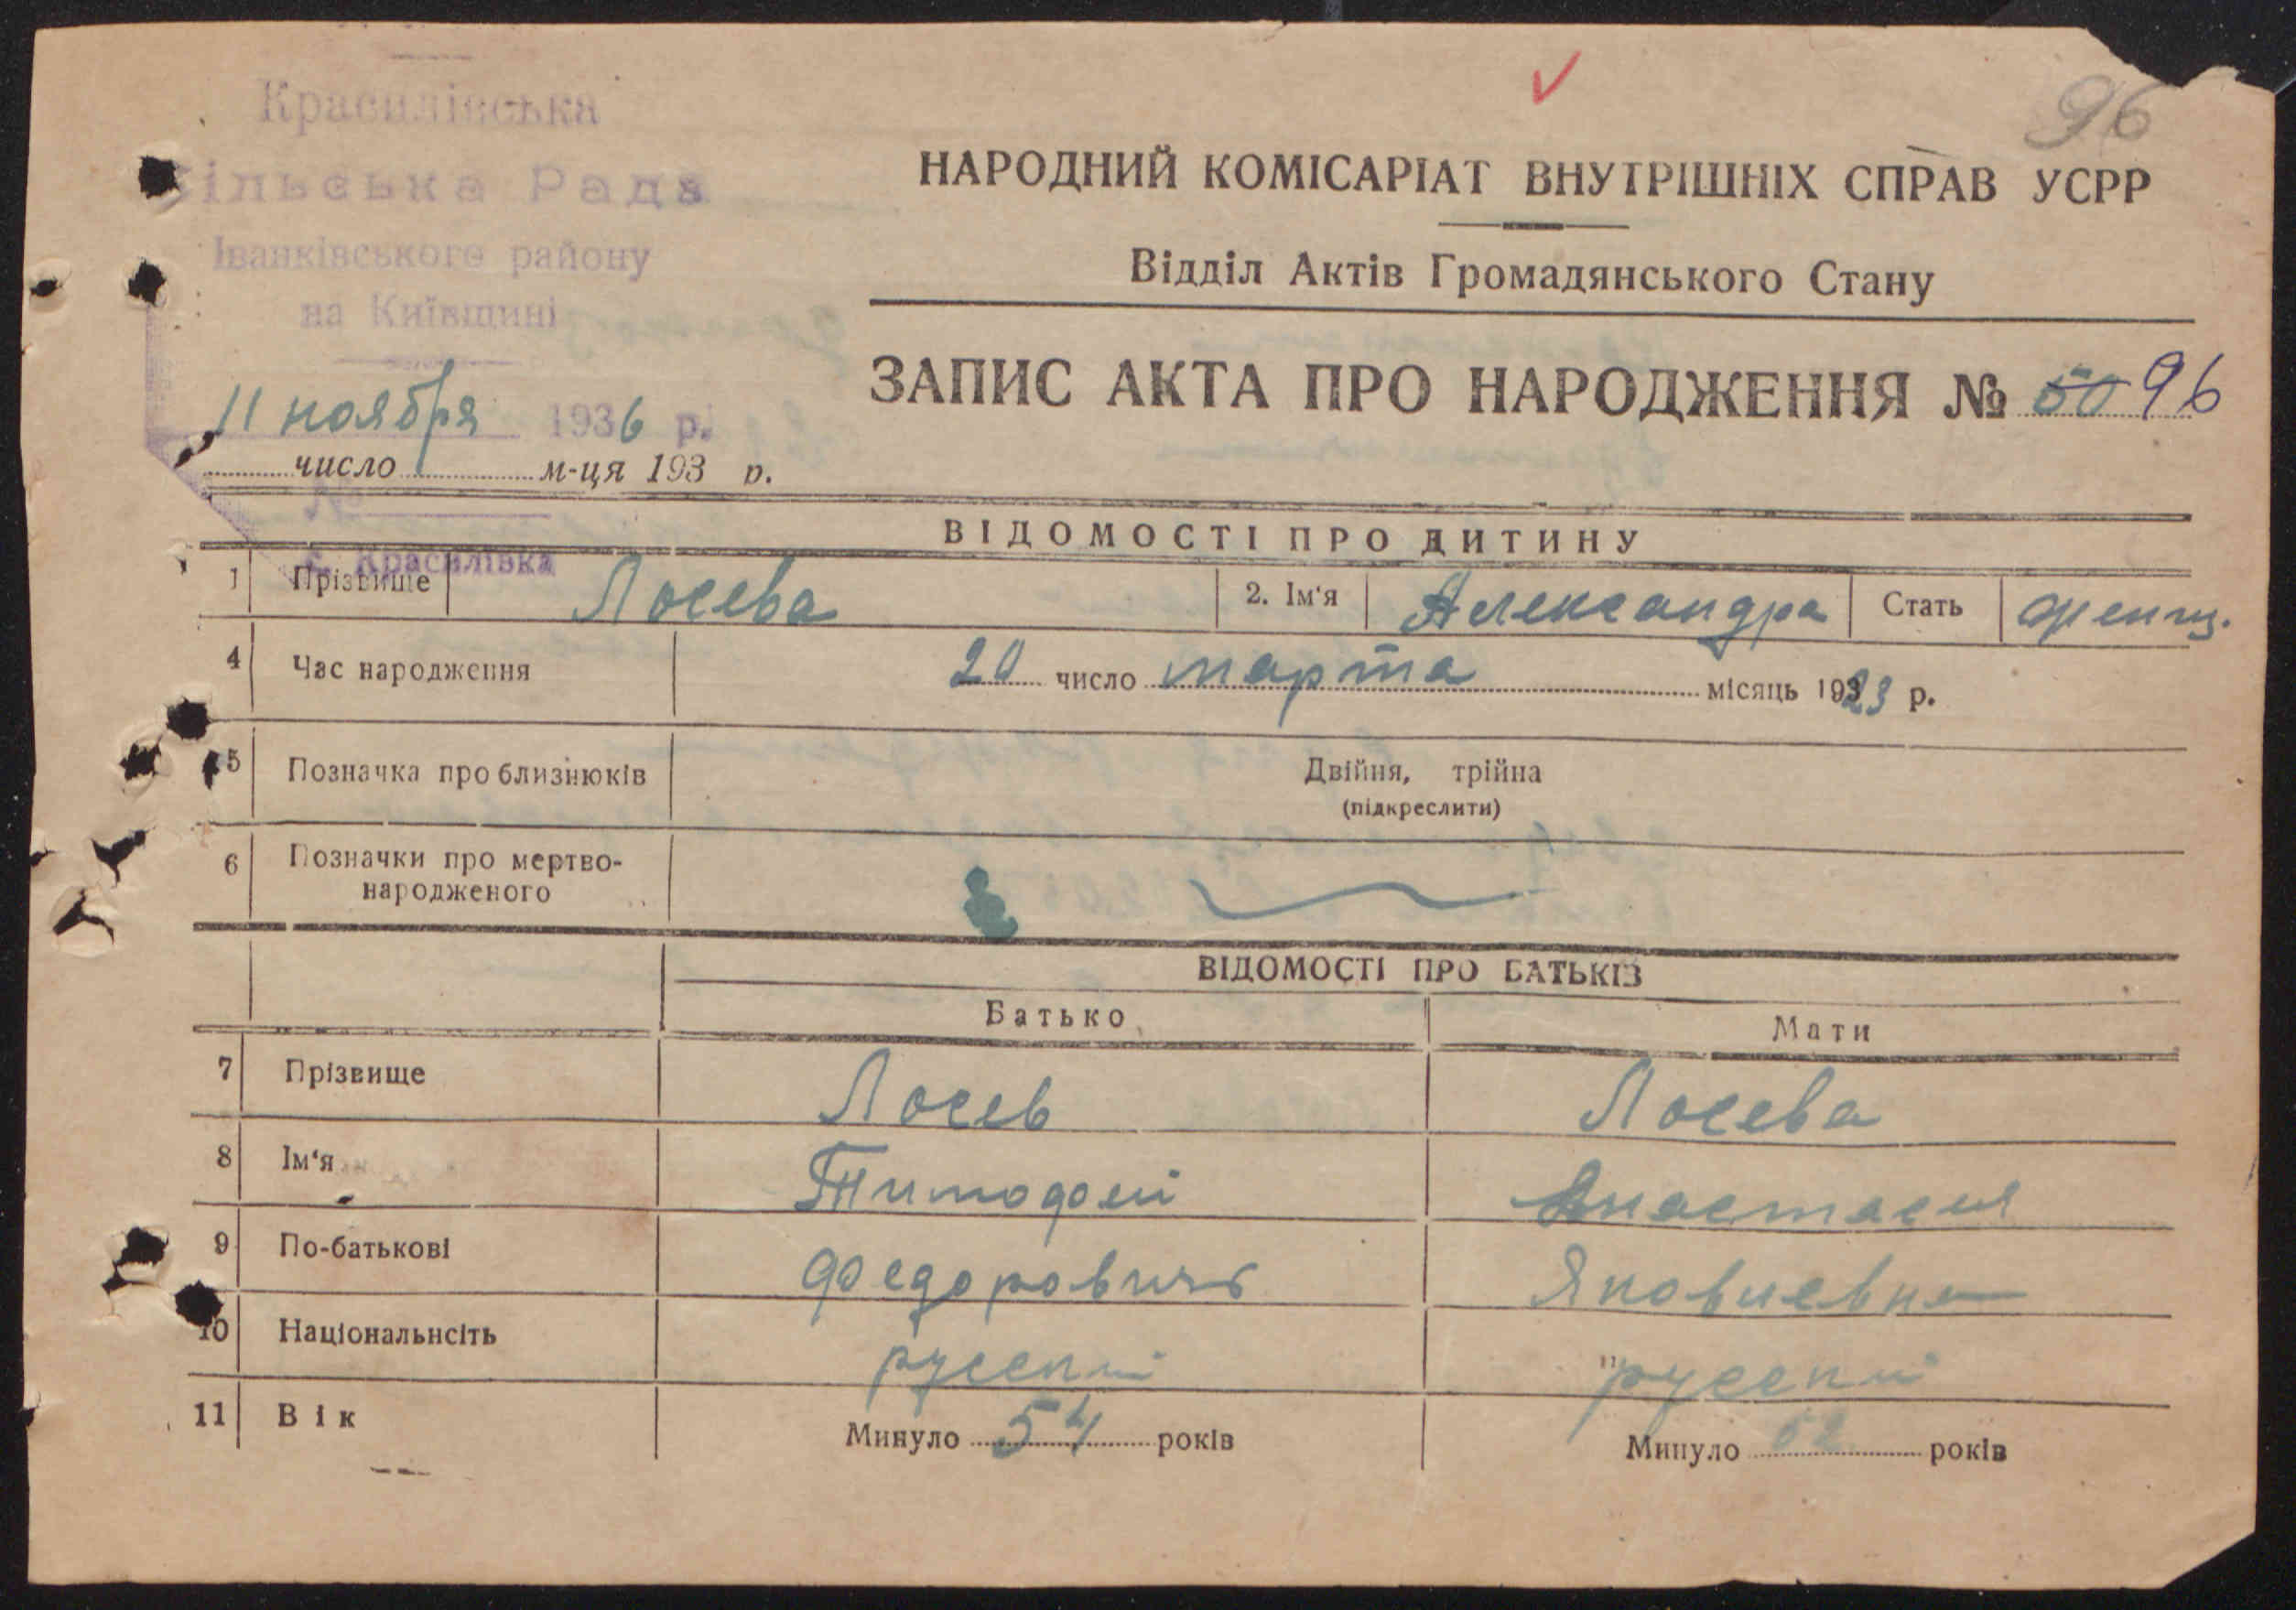 96
Красилівська
Сільська Рада
Іванківського району
на Київщині
11 ноября 1936 р.
число м-ця 193 р.
№
с. Красилівка
НАРОДНИЙ КОМІСАРІАТ ВНУТРІШНІХ СПРАВ УСРР
Відділ Актів Громадянського Стану
ЗАПИС АКТА ПРО НАРОДЖЕННЯ № 50 96
ВІДОМОСТІ ПРО ДИТИНУ
1 Прізвище Лосева 2. Ім'я Александра Стать женщ.
4 Час народження 20 число марта місяць 1923 р.
5 Позначка про близнюків Двійня, трійна
(підкреслити)
6 Позначки про мертво-
народженого
ВІДОМОСТІ ПРО БАТЬКІВ
Батько Мати
7 Прізвище Лосев Лосева
8 Ім'я Тимофей Анастасия
9 По-батькові Федоровичь Яковлевна
10 Національнсіть русский русский
11 Вік Минуло 54 років Минуло 52 років